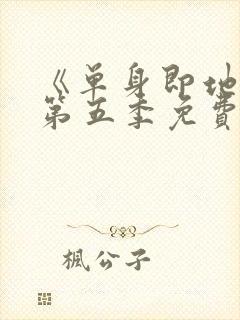 《单身即地
第五季免费
枫公子